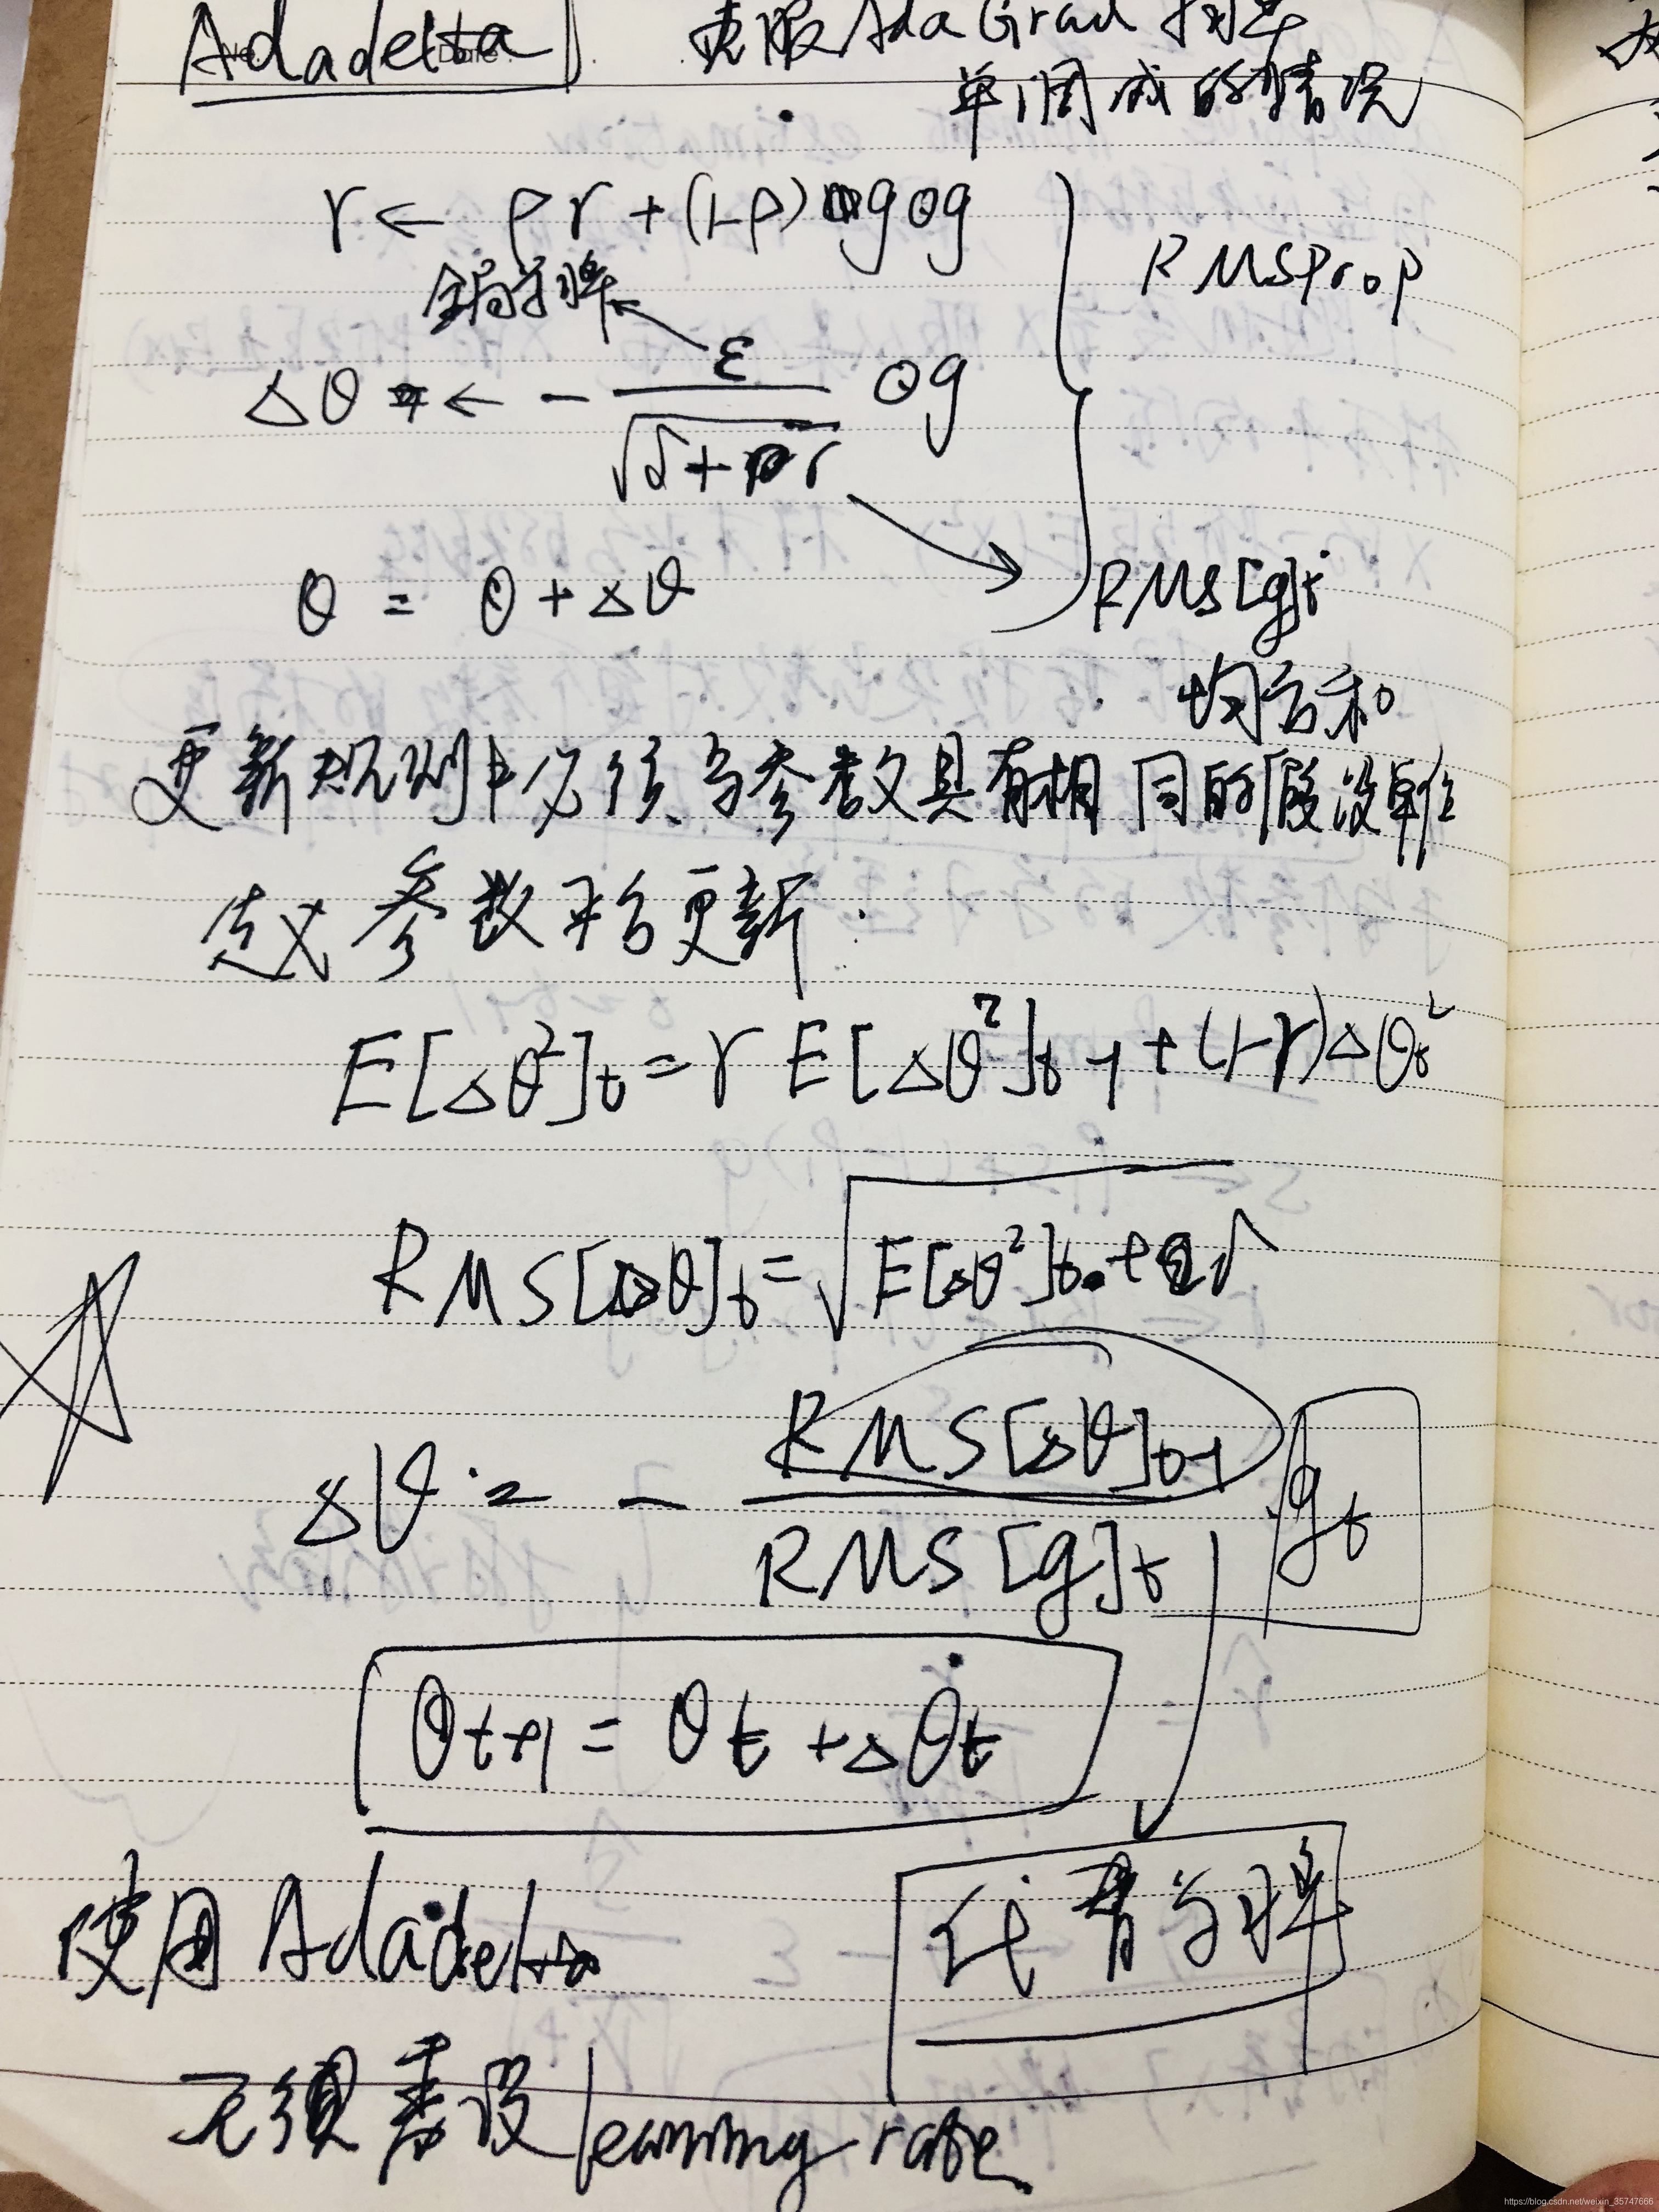 Adadelta 克服AdaGrad 学习率
单调减的情况
r ← ρr + (1-ρ) g⊙g
RMSProp
全局学习率
Δθ ← - ε / √(δ + r) ⊙g
θ = θ + Δθ
RMS[g]t
均方和
更新规则中必须与参数具有相同的假设单位
定义参数平方更新:
E[Δθ²]t = r E[Δθ²]t-1 + (1-r)Δθt²
RMS[Δθ]t = √(E[Δθ²]t + δ)
Δθ = - RMS[Δθ]t-1 / RMS[g]t gt
θt+1 = θt + Δθt
代替学习率
使用Adadelta
无须预设learning rate
https://blog.csdn.net/weixin_35747666